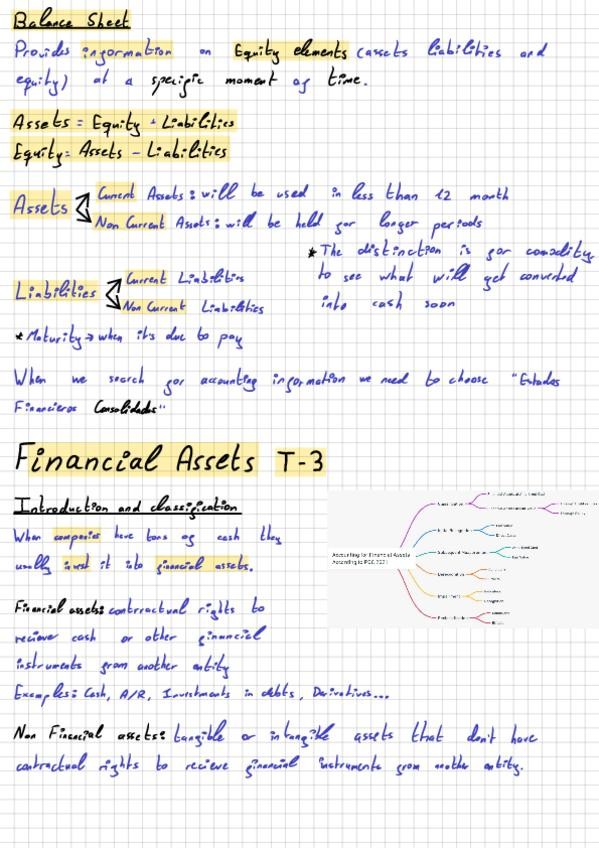 Balance Sheet
Provides information on Equity elements (assets liabilities and
equity) at a specific moment of time.
Assets = Equity + Liabilities
Equity = Assets - Liabilities
Assets
Current Assets: will be used in less than 12 month
Non Current Assets: will be held for longer periods
* The distinction is for comodity
to see what will get converted
into cash soon
Liabilities
Current Liabilities
Non Current Liabilities
* Maturity → when it's due to pay
When we search for accounting information we need to choose "Estados
Financieros Consolidados"
Financial Assets T-3
Introduction and classification
When companies have tons of cash they
usually invest it into financial assets.
Accounting for Financial Assets
According to PGC 2021
Classification
Initial Recognition
Subsequent Measurement
Impairment
Financial assets: contrractual rights to
recieve cash or other financial
instruments from another entity
Examples: Cash, A/R, Investments in debts, Derivatives...
Non Financial assets: tangible or intangible assets that don't have
contractual rights to recieve financial instruments from another entity.